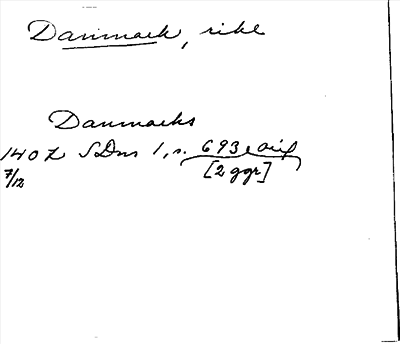 Danmark, rike
Danmarks
1407 SDns 1, s. 693 avis
7/12 [2 ggr]